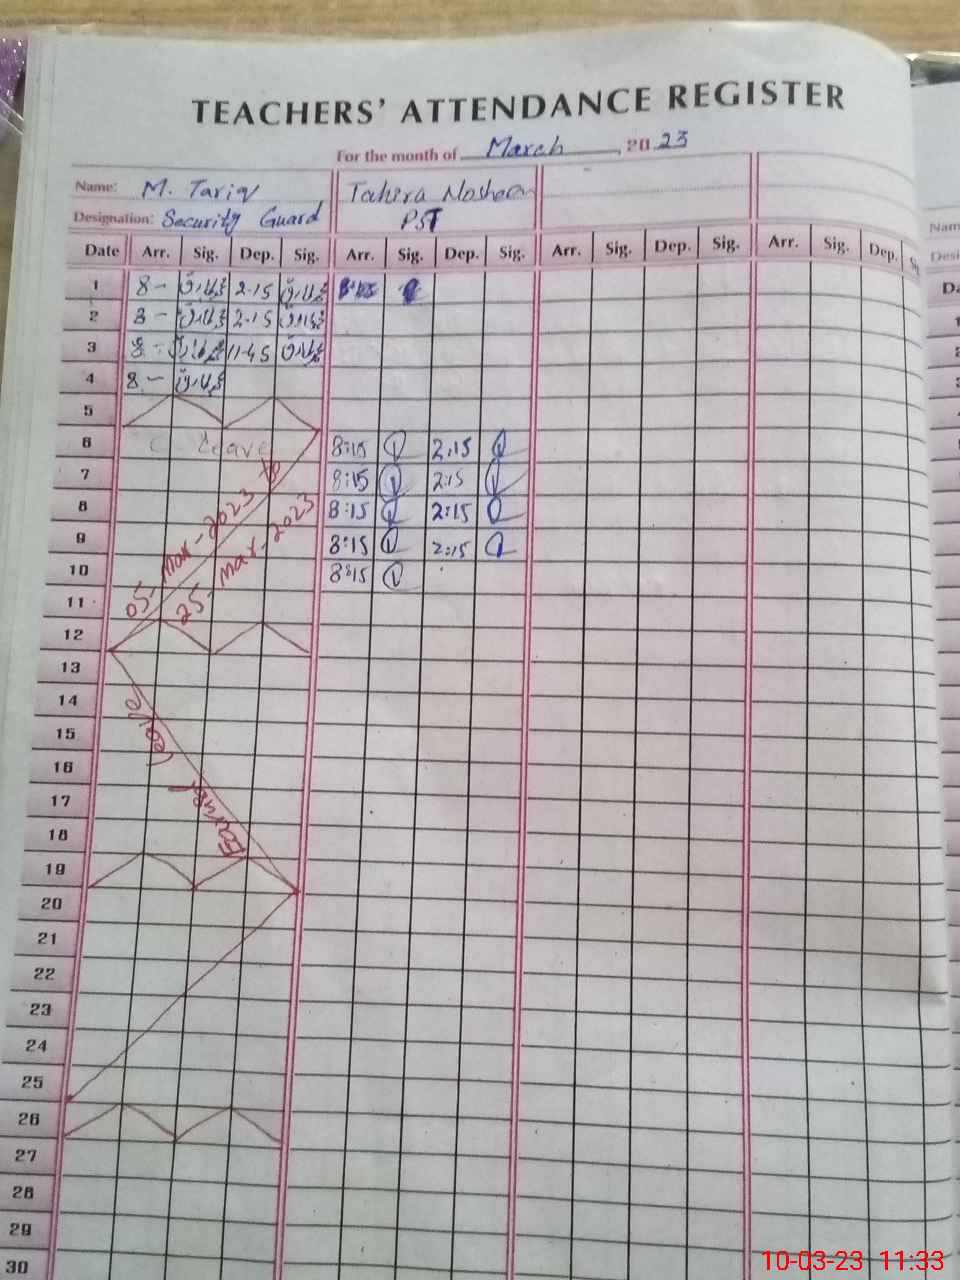 TEACHERS' ATTENDANCE REGISTER
For the month of March, 2023
Name: M. Tariq Tahira Nosheen
Designation: Security Guard PST
Date Arr. Sig. Dep. Sig. Arr. Sig. Dep. Sig. Arr. Sig. Dep. Sig. Arr. Sig. Dep.
1 8 - 2.15
2 8 - 2.15
3 8 - 11-45
4 8 -
5
6 Leave 8:15 2:15
7 8:15 2:15
8 8:15 2:15
9 8:15 2:15
10 8:15
11
12
13
14
15
16
17
18
19
20
21
22
23
24
25
26
27
28
29
30
05-Mar-2023 to
25-Mar-2023
Earned Leave
Nam
Desi
Da
10-03-23 11:33